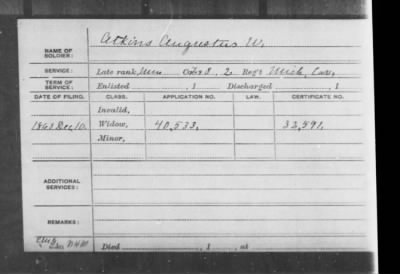 NAME OF SOLDIER: Atkins Augustus W.
SERVICE: Late rank, Co. 2 Reg't Mich. Cav.
TERM OF SERVICE: Enlisted , 1 Discharged , 1
DATE OF FILING. CLASS. APPLICATION NO. LAW. CERTIFICATE NO.
Invalid,
1863 Dec, 10. Widow, 40,533. 32,591.
Minor,
ADDITIONAL SERVICES:
REMARKS:
Died , 1 , at